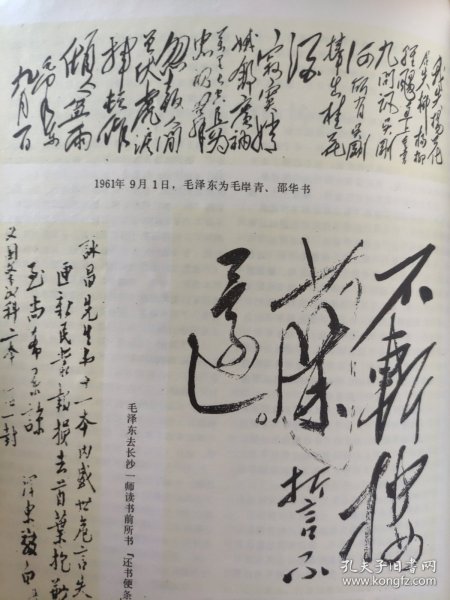 我失骄杨君
失柳杨柳
轻飏直上重霄
九问讯吴刚
何所有吴刚
捧出桂花
酒
寂寞嫦
娥舒广袖
万里长空且为
忠魂舞
忽报人间
曾伏虎泪
倾盆雨
1961年9月1日，毛泽东为毛岸青、邵华书
不斩楼
兰誓不
还。
毛泽东去长沙一师读书前所书“还书便条
詠昌先生书十一本内盛世危言失
匣新民丛报损去首葉抱歉
至尚希原谅
泽东敬白
又国文教科二本 信一封
孔夫子旧书网